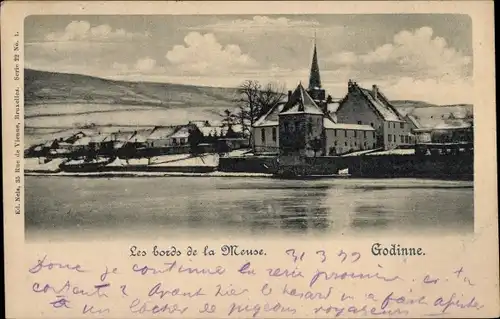 Ed. Nels, 35 Rue de Vienne, Bruxelles. Serie 22 No. 1.
Les bords de la Meuse. 31 3 99 Godinne.
Donc je continue la série promie, es tu
contente ? Avant hier le hasard m'a fait apporter
un clocher de pigeons voyageurs